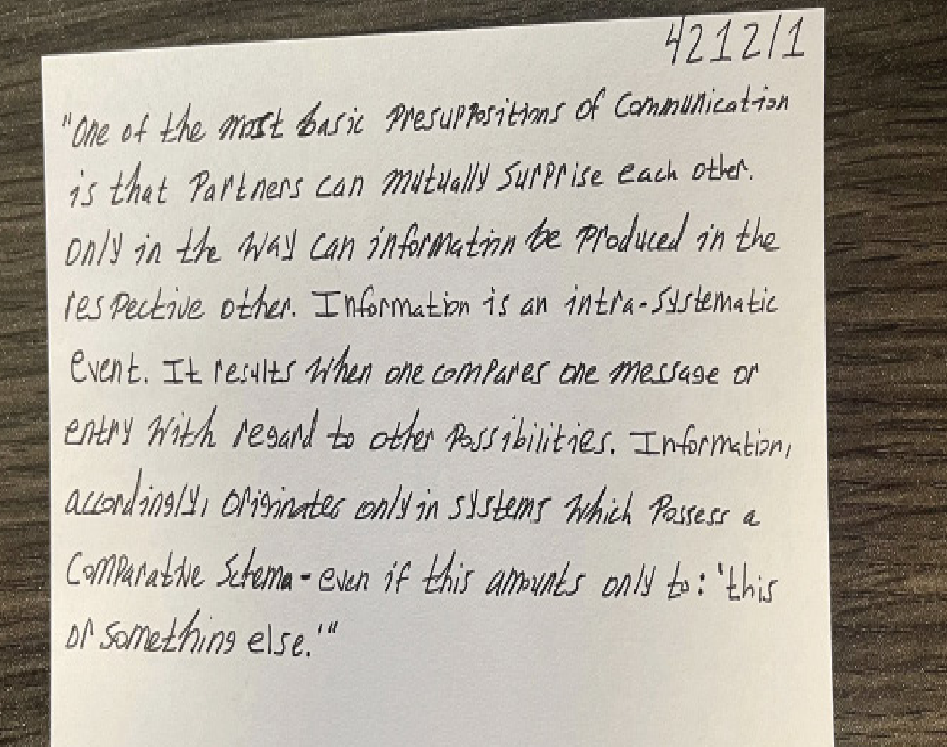 4212/1
"One of the most basic presuppositions of communication
is that partners can mutually surprise each other.
Only in the way can information be produced in the
respective other. Information is an intra-systematic
event. It results when one compares one message or
entry with regard to other possibilities. Information,
accordingly, originates only in systems which possess a
comparative schema - even if this amounts only to: 'this
or something else.'"